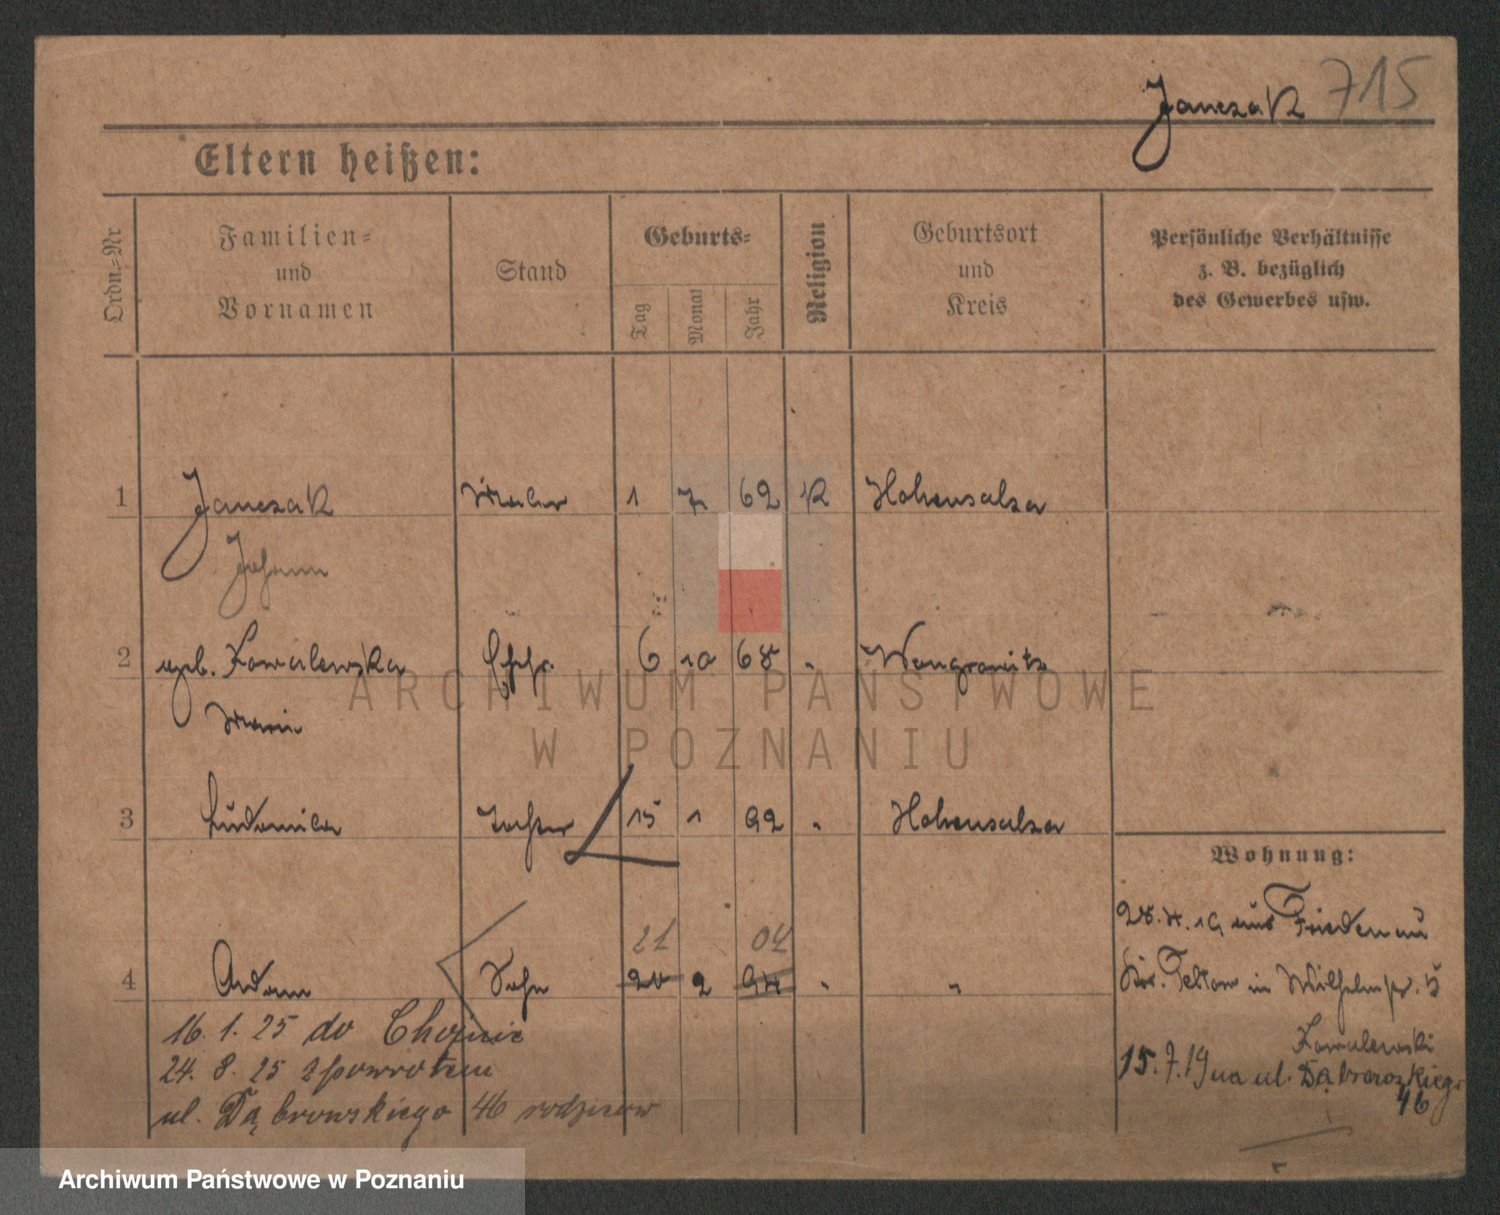 Janczak 715
Eltern heißen:
Ordn.-Nr
Familien-
und
Vornamen
Stand
Geburts-
Tag
Monat
Jahr
Religion
Geburtsort
und
Kreis
Persönliche Verhältnisse
z. B. bezüglich
des Gewerbes usw.
1 Janczak Maler 1 7 62 K Hohensalza
Johann
2 geb. Kowalewska Ehefr. 6 10 68 " Wongrowitz
Marie
3 Ludomila Tochter 15 1 92 " Hohensalza
Wohnung:
28. 4. 19 aus Friedenau
21 04
4 Adam Sohn 20 2 94 " "
Kr. Teltow in Wilhelmstr. 5
Kowalewski
16. 1. 25 do Chojnic
24. 8. 25 zpowrotem
ul. Dąbrowskiego 46 rodziców
15. 7. 19 na ul. Dąbrowskiego
46
ARCHIWUM PAŃSTWOWE
W POZNANIU
Archiwum Państwowe w Poznaniu